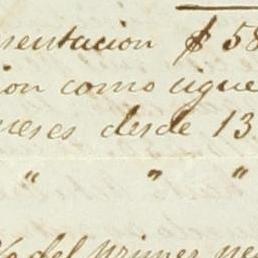 mentacion $ 58
ion como sigue
meses desde 13
" " "
% del primer pe